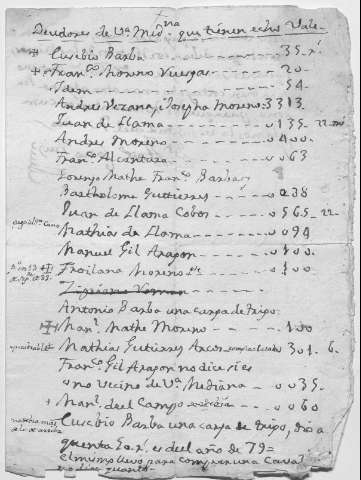 Deudores de Va Medna que tienen echo Vale
+ Eusebio Barba 35 r
+ Franco Moreno Viergas 20
Idem 54
Andres Vezana, i Josepha Moreno 3313
Juan de Llama 0135 22 m
Andres Moreno 0400
Franco Alcantara 0063
Lorenzo Mathe Franco Barba
Bartholome Guttierres 0238
Juan de Llama Cobos 0565 22
Mathias de Llama 0094
Manuel Gil Aragon 0100
Froilana Moreno 0100
Antonio Barba una carga de trigo
Manl Mathe Moreno 100
Mathias Gutierres Arcos 301 6
Franco Gil Aragon no dice si es
o no vecino de Va Mediana 0035
+ Manl deel Campo 0060
Eusebio Barba una carga de trigo, dio a
quenta 60 rs es deel año de 79=
el mismo llevo para comprar una Caval
no dice quanto